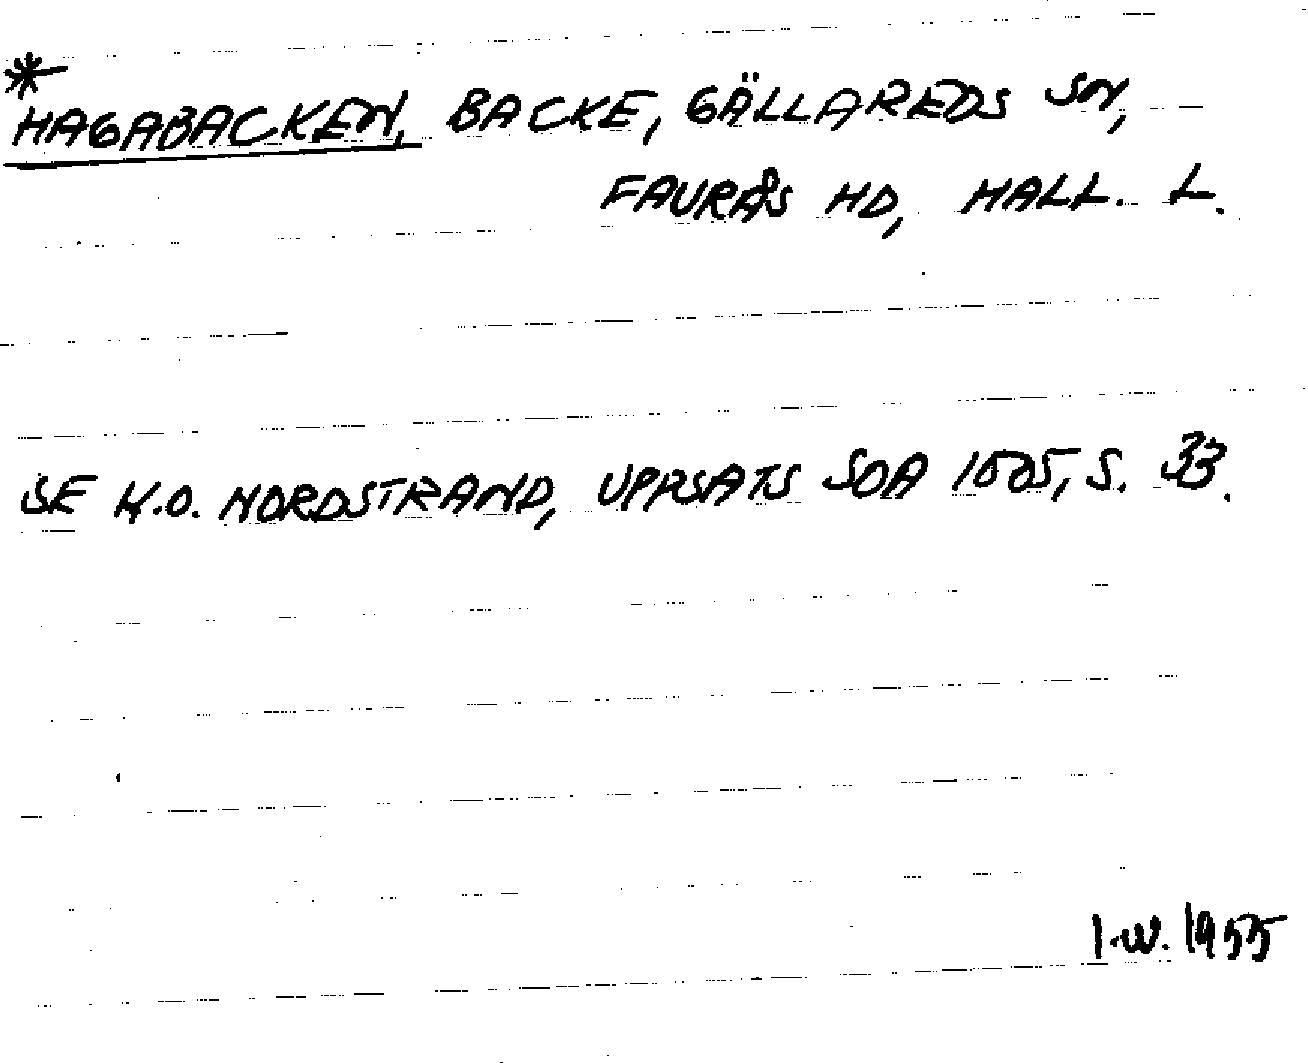 *
HAGABACKEN, BACKE, GÄLLAREDS SN,
FAURÅS HD, HALL. L.
SE K.O. NORDSTRAND, UPPSATS SOA 1505, S. 33.
I.W. 1955